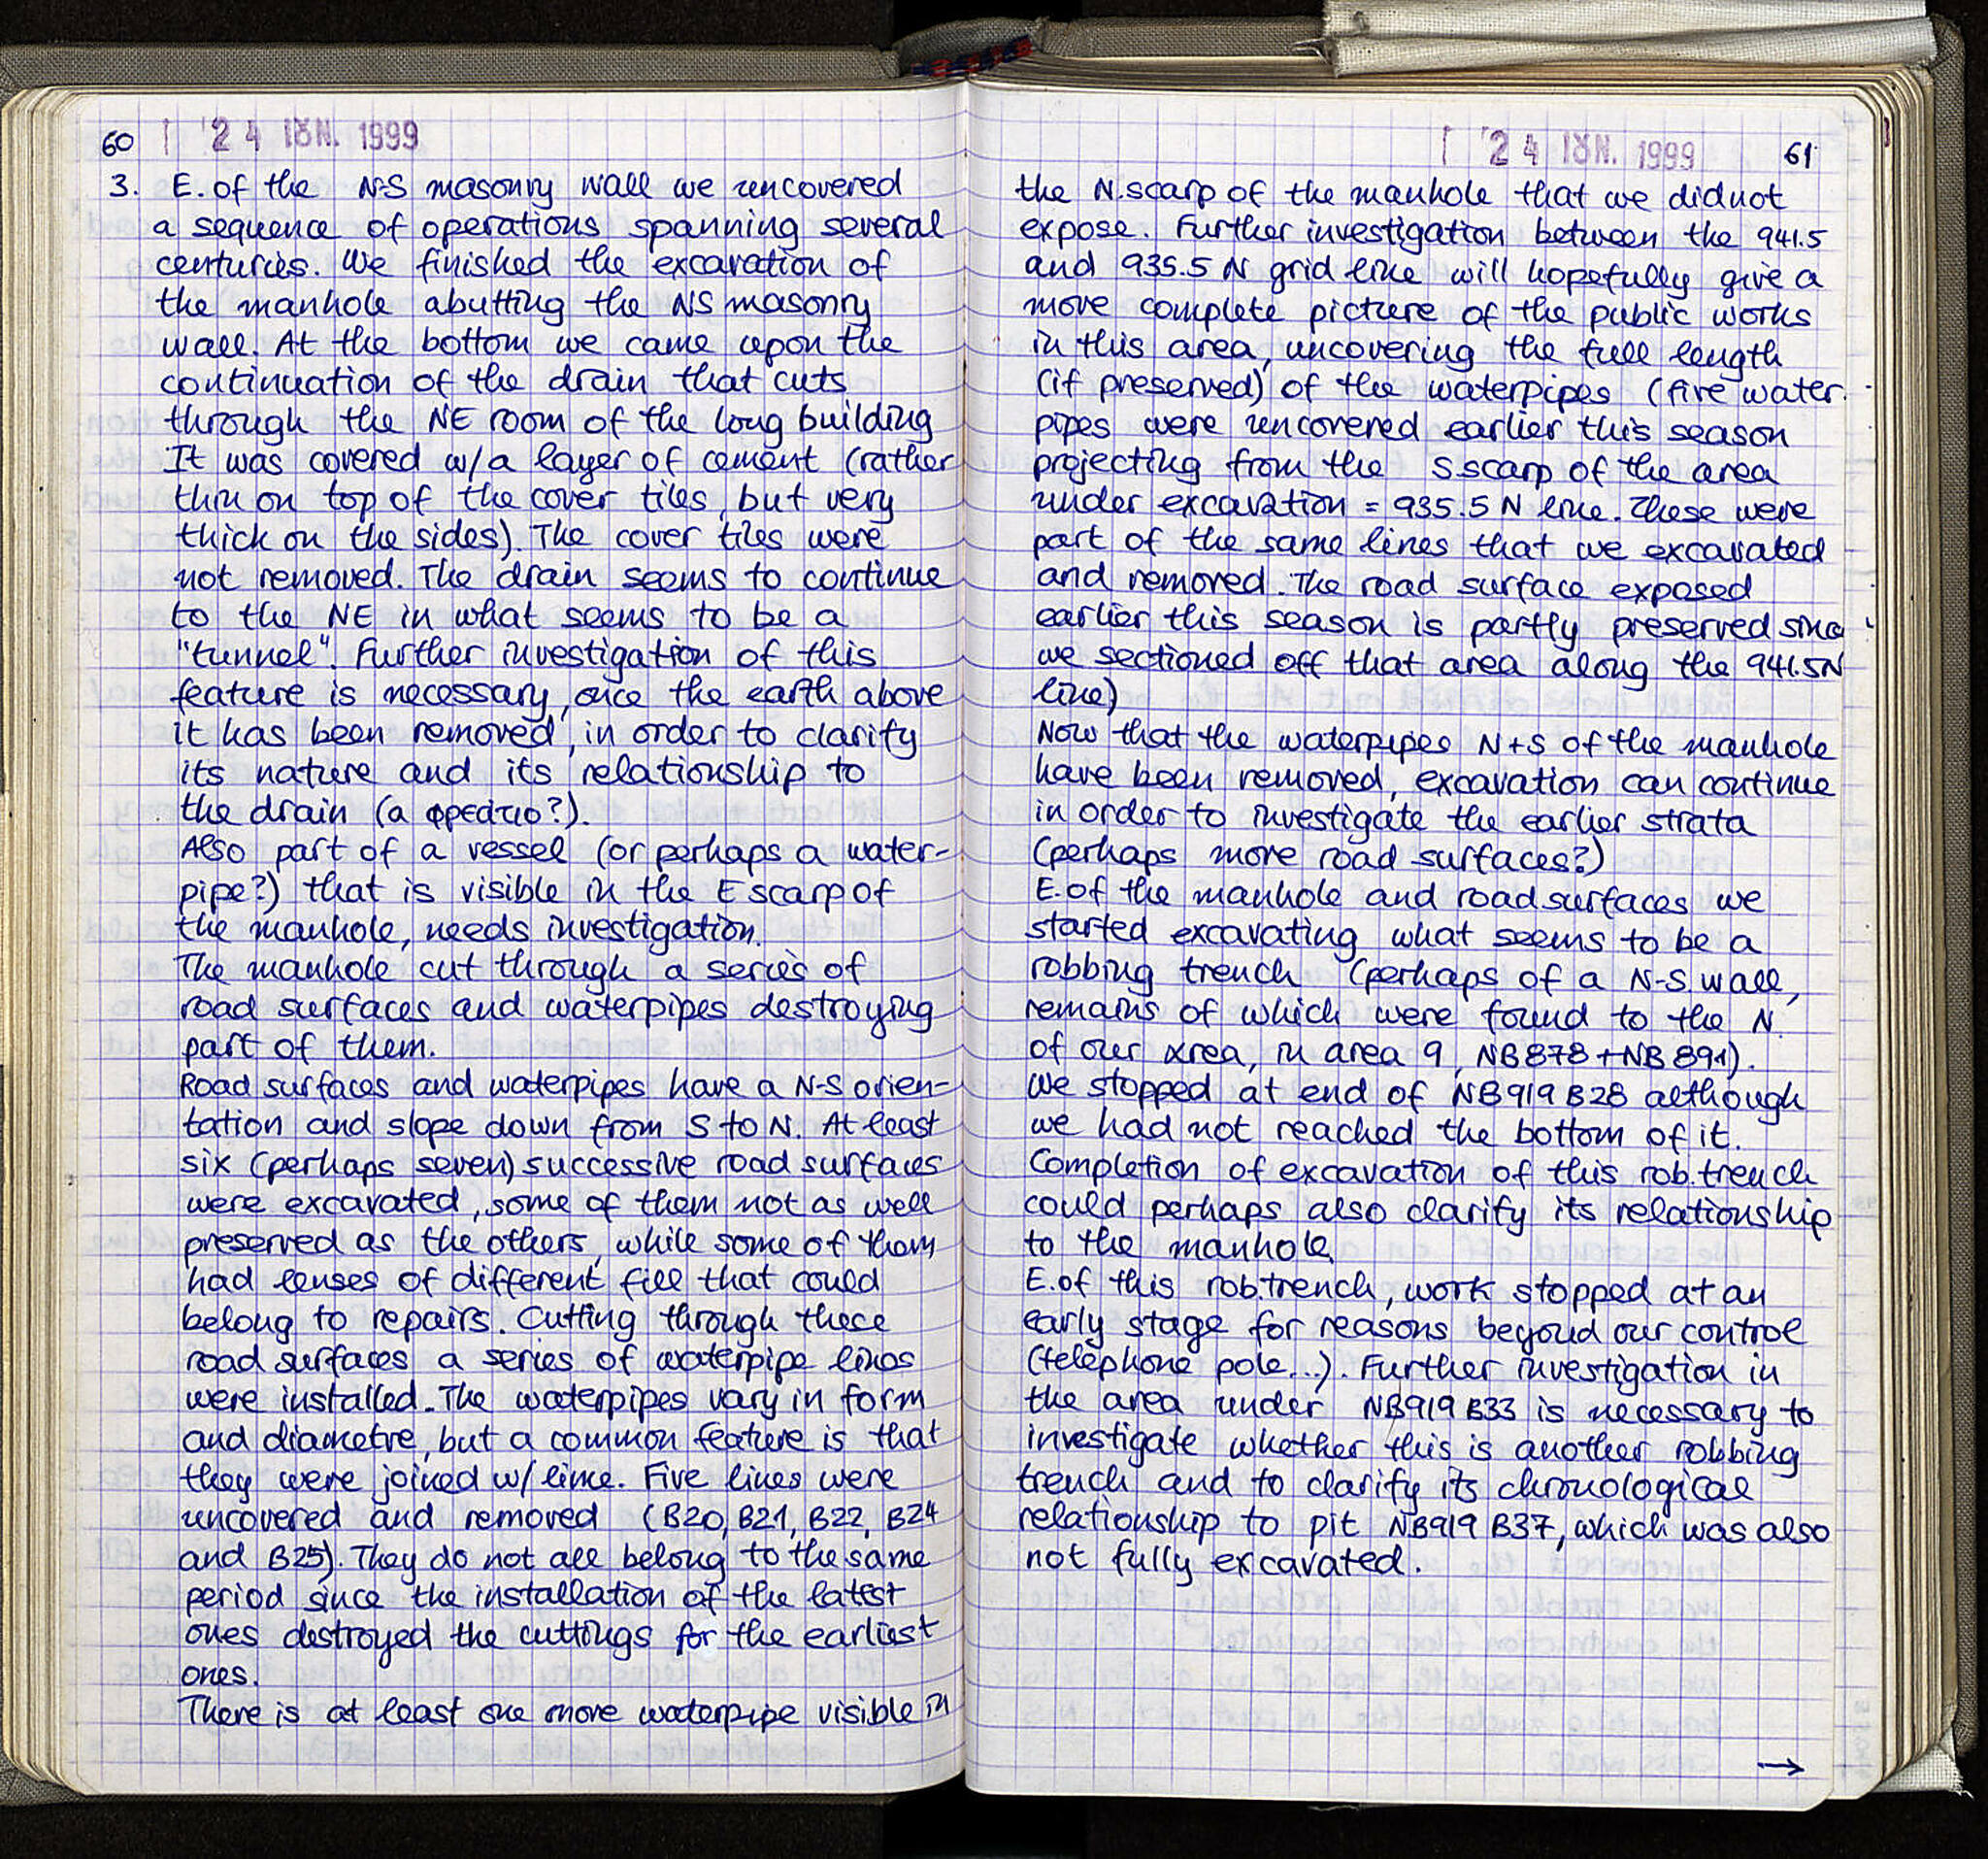 60 '24 ΙΟΥΝ. 1999
3. E. of the N-S masonry wall we uncovered
a sequence of operations spanning several
centuries. We finished the excavation of
the manhole abutting the NS masonry
wall. At the bottom we came upon the
continuation of the drain that cuts
through the NE room of the long building
It was covered w/a layer of cement (rather
thin on top of the cover tiles, but very
thick on the sides). The cover tiles were
not removed. The drain seems to continue
to the NE in what seems to be a
"tunnel". Further investigation of this
feature is necessary, once the earth above
it has been removed, in order to clarify
its nature and its relationship to
the drain (a φρεάτιο?).
Also part of a vessel (or perhaps a water-
pipe?) that is visible in the E scarp of
the manhole, needs investigation.
The manhole cut through a series of
road surfaces and waterpipes destroying
part of them.
Road surfaces and waterpipes have a N-S orien-
tation and slope down from S to N. At least
six (perhaps seven) successive road surfaces
were excavated, some of them not as well
preserved as the others, while some of them
had lenses of different fill that could
belong to repairs. Cutting through these
road surfaces a series of waterpipe lines
were installed. The waterpipes vary in form
and diametre, but a common feature is that
they were joined w/lime. Five lines were
uncovered and removed (B20, B21, B22, B24
and B25). They do not all belong to the same
period since the installation of the latest
ones destroyed the cuttings for the earliest
ones.
There is at least one more waterpipe visible in
'24 ΙΟΥΝ. 1999 61
the N. scarp of the manhole that we did not
expose. Further investigation between the 941.5
and 935.5 N grid line will hopefully give a
more complete picture of the public works
in this area, uncovering the full length
(if preserved) of the waterpipes (five water.
pipes were uncovered earlier this season
projecting from the S scarp of the area
under excavation = 935.5 N line. These were
part of the same lines that we excavated
and removed. The road surface exposed
earlier this season is partly preserved since
we sectioned off that area along the 941.5N
line)
Now that the waterpipes N+S of the manhole
have been removed, excavation can continue
in order to investigate the earlier strata
(perhaps more road surfaces?)
E. of the manhole and road surfaces we
started excavating what seems to be a
robbing trench (perhaps of a N-S wall,
remains of which were found to the N.
of our area, in area 9, NB878+NB891).
We stopped at end of NB919 B28 although
we had not reached the bottom of it.
Completion of excavation of this rob. trench
could perhaps also clarify its relationship
to the manhole.
E. of this rob. trench, work stopped at an
early stage for reasons beyond our control
(telephone pole...). Further investigation in
the area under NB919 B33 is necessary to
investigate whether this is another robbing
trench and to clarify its chronological
relationship to pit NB919 B37, which was also
not fully excavated.
→